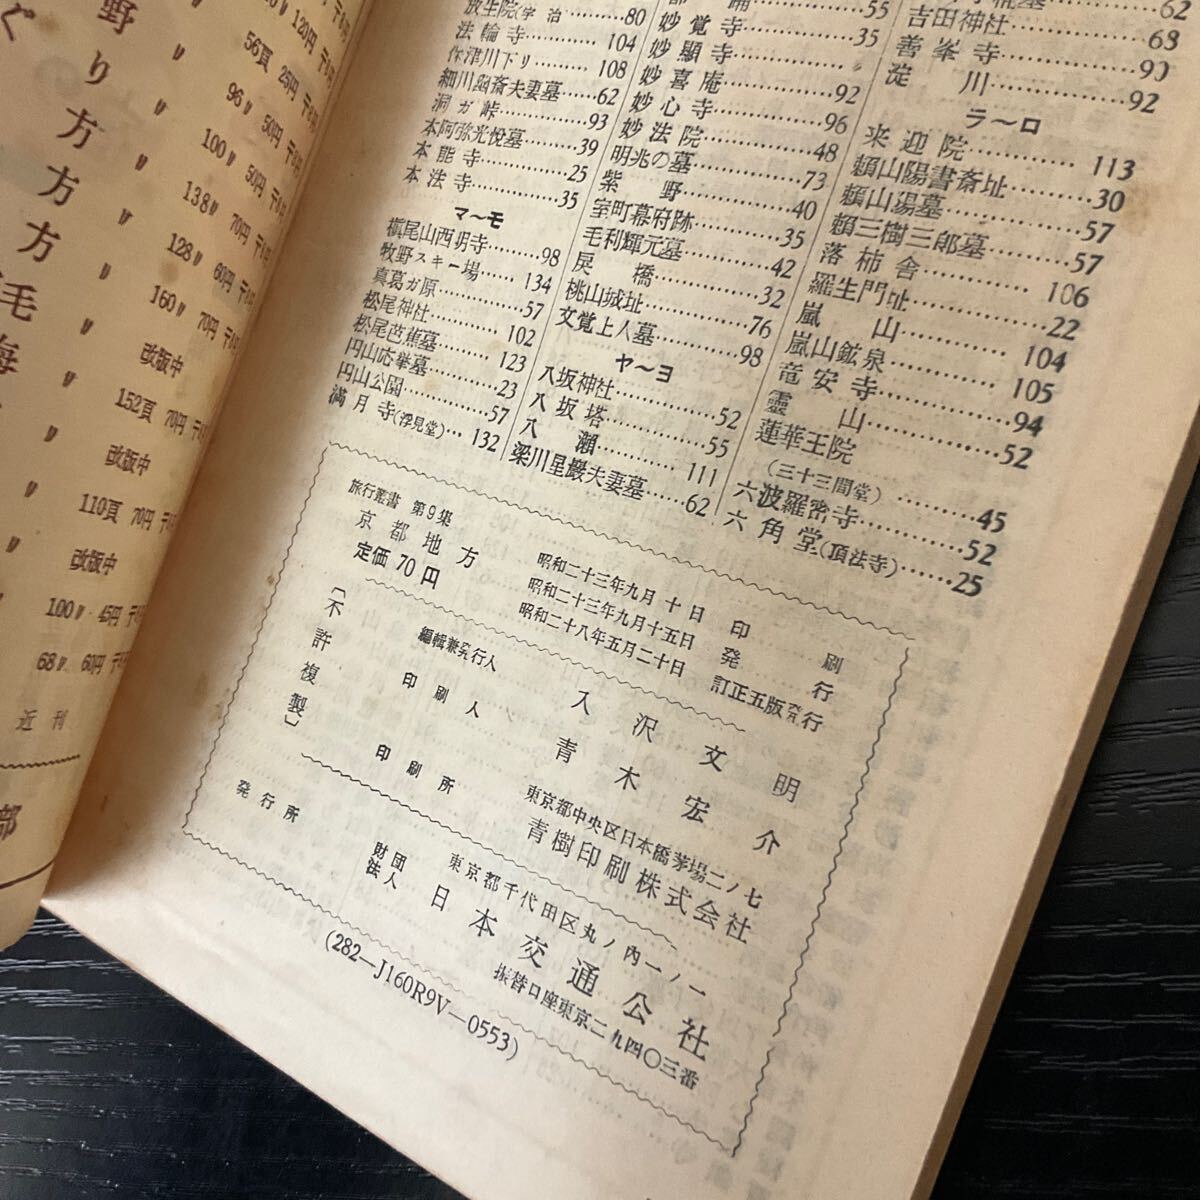 野
り
方
方
方
毛
海
部
120円
56頁 25円
96〃 50円
100〃 50円
138〃 70円
128〃 60円
160〃 70円
改版中
152頁 70円
改版中
110頁 70円
改版中
100〃 45円
68〃 60円
近刊
放生院(宇治)……80
法輪寺……104
保津川下り……108
細川幽斎夫妻墓……62
洞ガ峠……93
本阿弥光悦墓……39
本能寺……25
本法寺……35
マ〜モ
槇尾山西明寺……98
牧野スキー場……134
真葛ガ原……57
松尾神社……102
松尾芭蕉墓……123
円山応挙墓……23
円山公園……57
満月寺(浮見堂)…132
踊……55
妙覚寺……35
妙顯寺……
妙喜庵……92
妙心寺……96
妙法院……48
明兆の墓……73
紫野……40
室町幕府跡……35
毛利輝元墓……42
戻橋……32
桃山城址……76
文覚上人墓……98
ヤ〜ヨ
八坂神社……52
八坂塔……55
八瀬……111
梁川星巖夫妻墓……62
62
吉田神社……68
善峯寺……90
淀川……92
ラ〜ロ
来迎院……113
頼山陽書斎址……30
頼山陽墓……57
頼三樹三郎墓……57
落柿舎……106
羅生門址……22
嵐山……104
嵐山鉱泉……105
竜安寺……94
靈山……52
蓮華王院
(三十三間堂)……45
六波羅密寺……52
六角堂(頂法寺)……25
旅行叢書 第9集
京都地方
定価 70円
〔不許複製〕
昭和二十三年九月十日 印刷
昭和二十三年九月十五日 発行
昭和二十八年五月二十日 訂正五版発行
編輯兼発行人 入沢文明
印刷人 青木宏介
東京都中央区日本橋茅場二ノ七
印刷所 青樹印刷株式会社
東京都千代田区丸ノ内一ノ一
発行所 財団法人 日本交通公社
振替口座東京二九四〇三番
(282—J160R9V—0553)